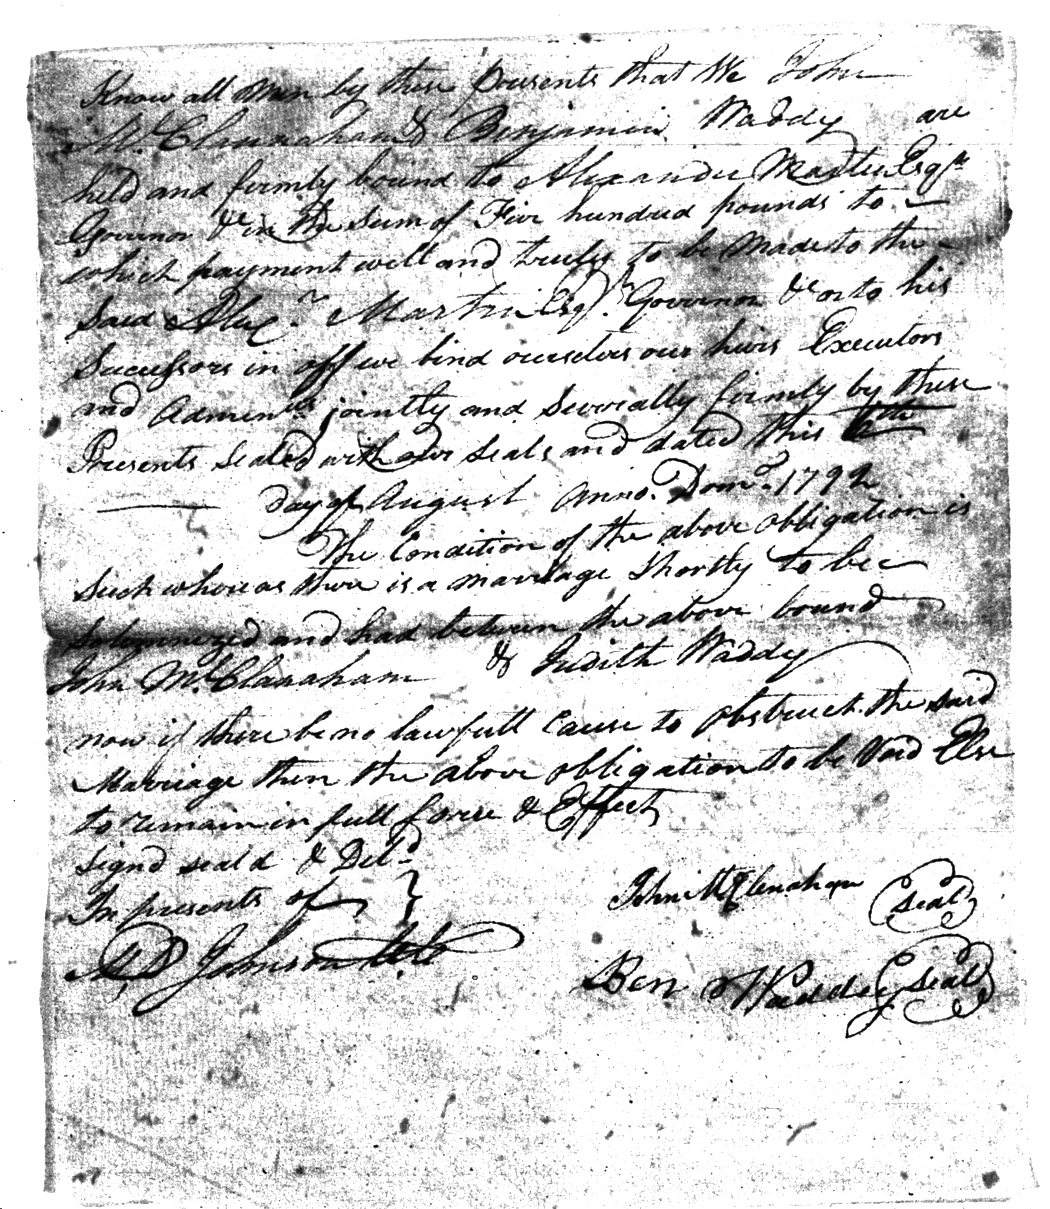 Know all Men by these presents that We John
Mc.Clanaham & Benjamin Waddy are
held and firmly bound to Alexander Martin Esqr
Governor &c in the Sum of Five hundred pounds to
which payment well and truly to be Made to the
Said Alexr. Martin Esqr. Governor &c or to his
Successors in off we bind ourselves our heirs Executors
and Admenrs jointly and Severally firmly by these
Presents Sealed with our Seals and dated this
day of August Anno. Domo. 1792
The Condition of the above obligation is
Such whereas there is a marriage Shortly to be
Solemnized and had between the above bound
John Mc.Clanaham & Judith Waddy
now if there be no lawfull Cause to obstruct the said
Marriage then the above obligation to be Void Else
to remain in full force & Effect
Signd seald & Deld
In presents of
Johnson
John McClenaham Seal
Ben Waddy Seal